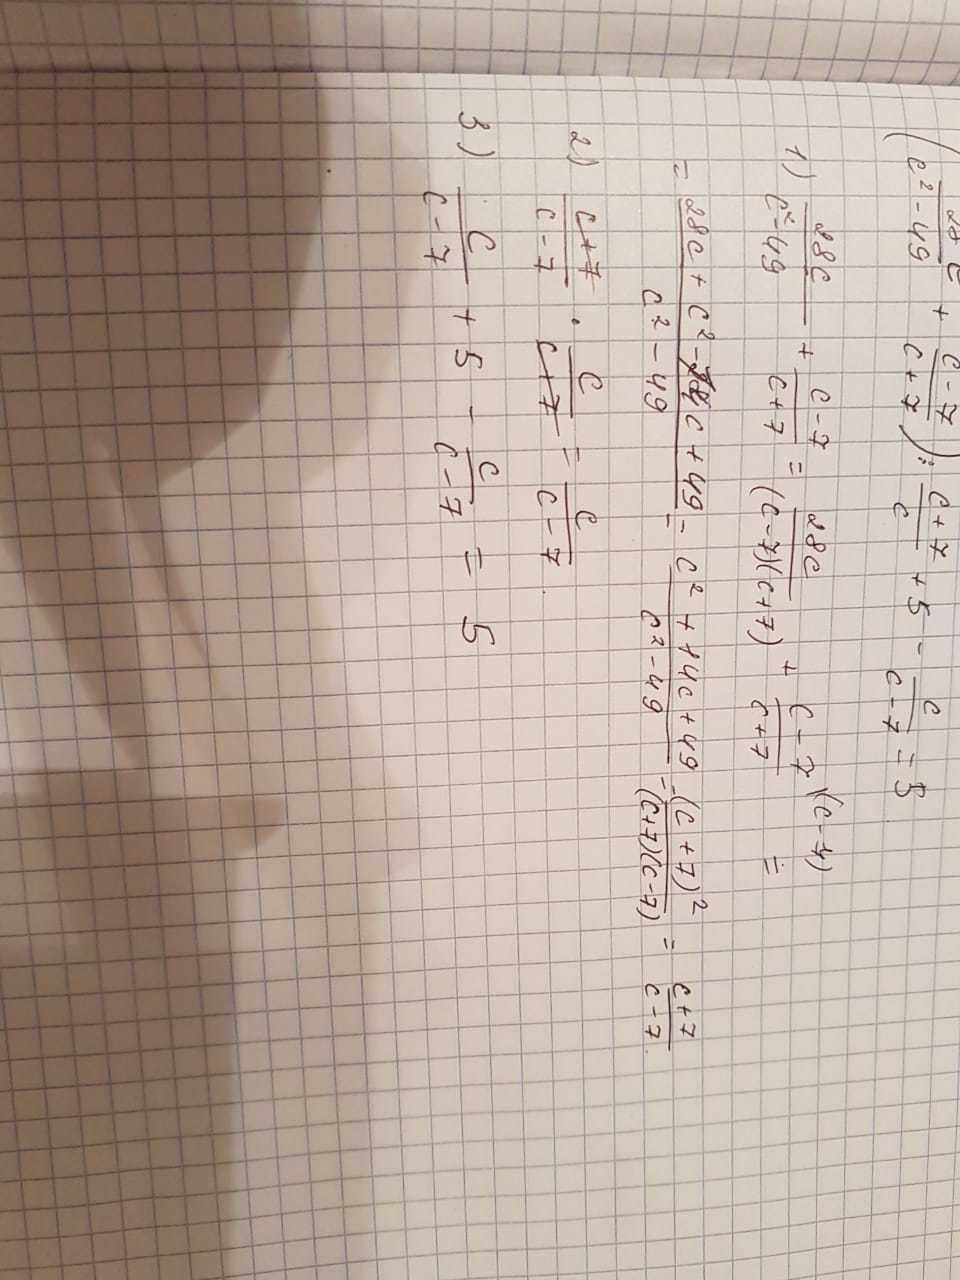 (28c/(c² - 49) + (c - 7)/(c + 7)) : (c + 7)/c + 5 - c/(c - 7) = 5
1) 28c/(c² - 49) + (c - 7)/(c + 7) = 28c/((c - 7)(c + 7)) + (c - 7)/(c + 7) \(c - 7) =
= (28c + c² - 14c + 49)/(c² - 49) = (c² + 14c + 49)/(c² - 49) = (c + 7)²/((c + 7)(c - 7)) = (c + 7)/(c - 7)
2) (c + 7)/(c - 7) · c/(c + 7) = c/(c - 7)
3) c/(c - 7) + 5 - c/(c - 7) = 5